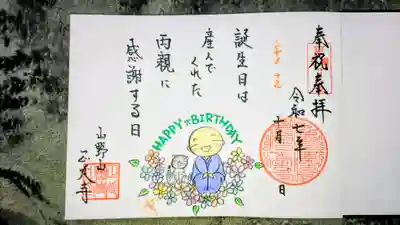 奉祝奉拝
令和七年
十月 日
誕生日は
産んで
くれた
両親に
感謝する日
HAPPY BIRTHDAY